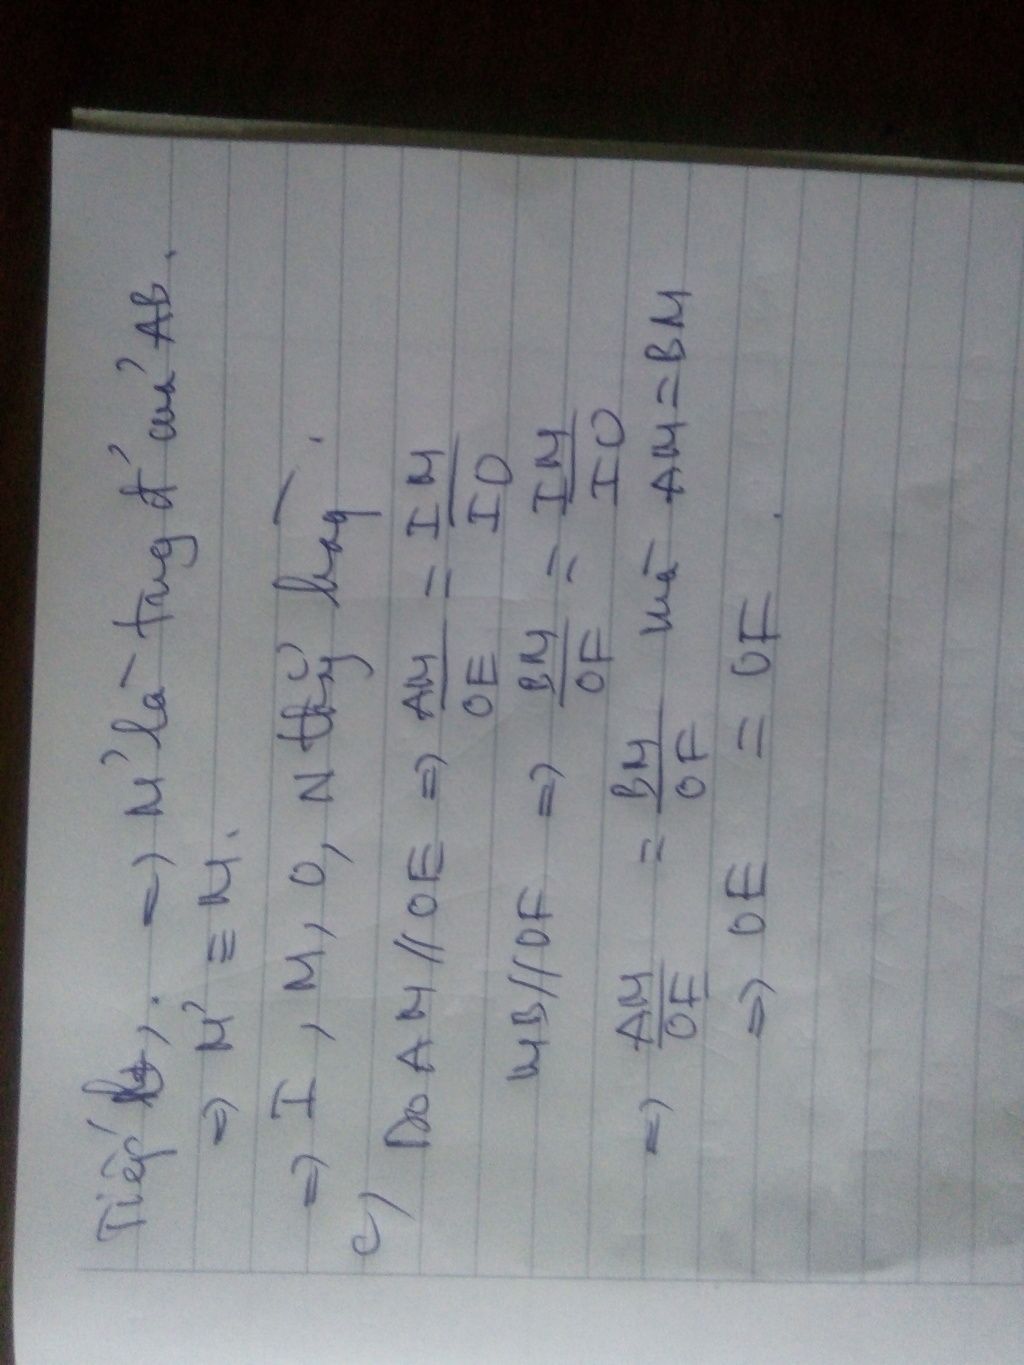 Tiếp b, . => M' là trung đ' của AB.
=> M' ≡ M.
=> I, M, O, N thẳng hàng.
c) Do AM // OE => AM/OE = IM/IO
MB // OF => BM/OF = IM/IO
=> AM/OF = BM/OF mà AM = BM
=> OE = OF.